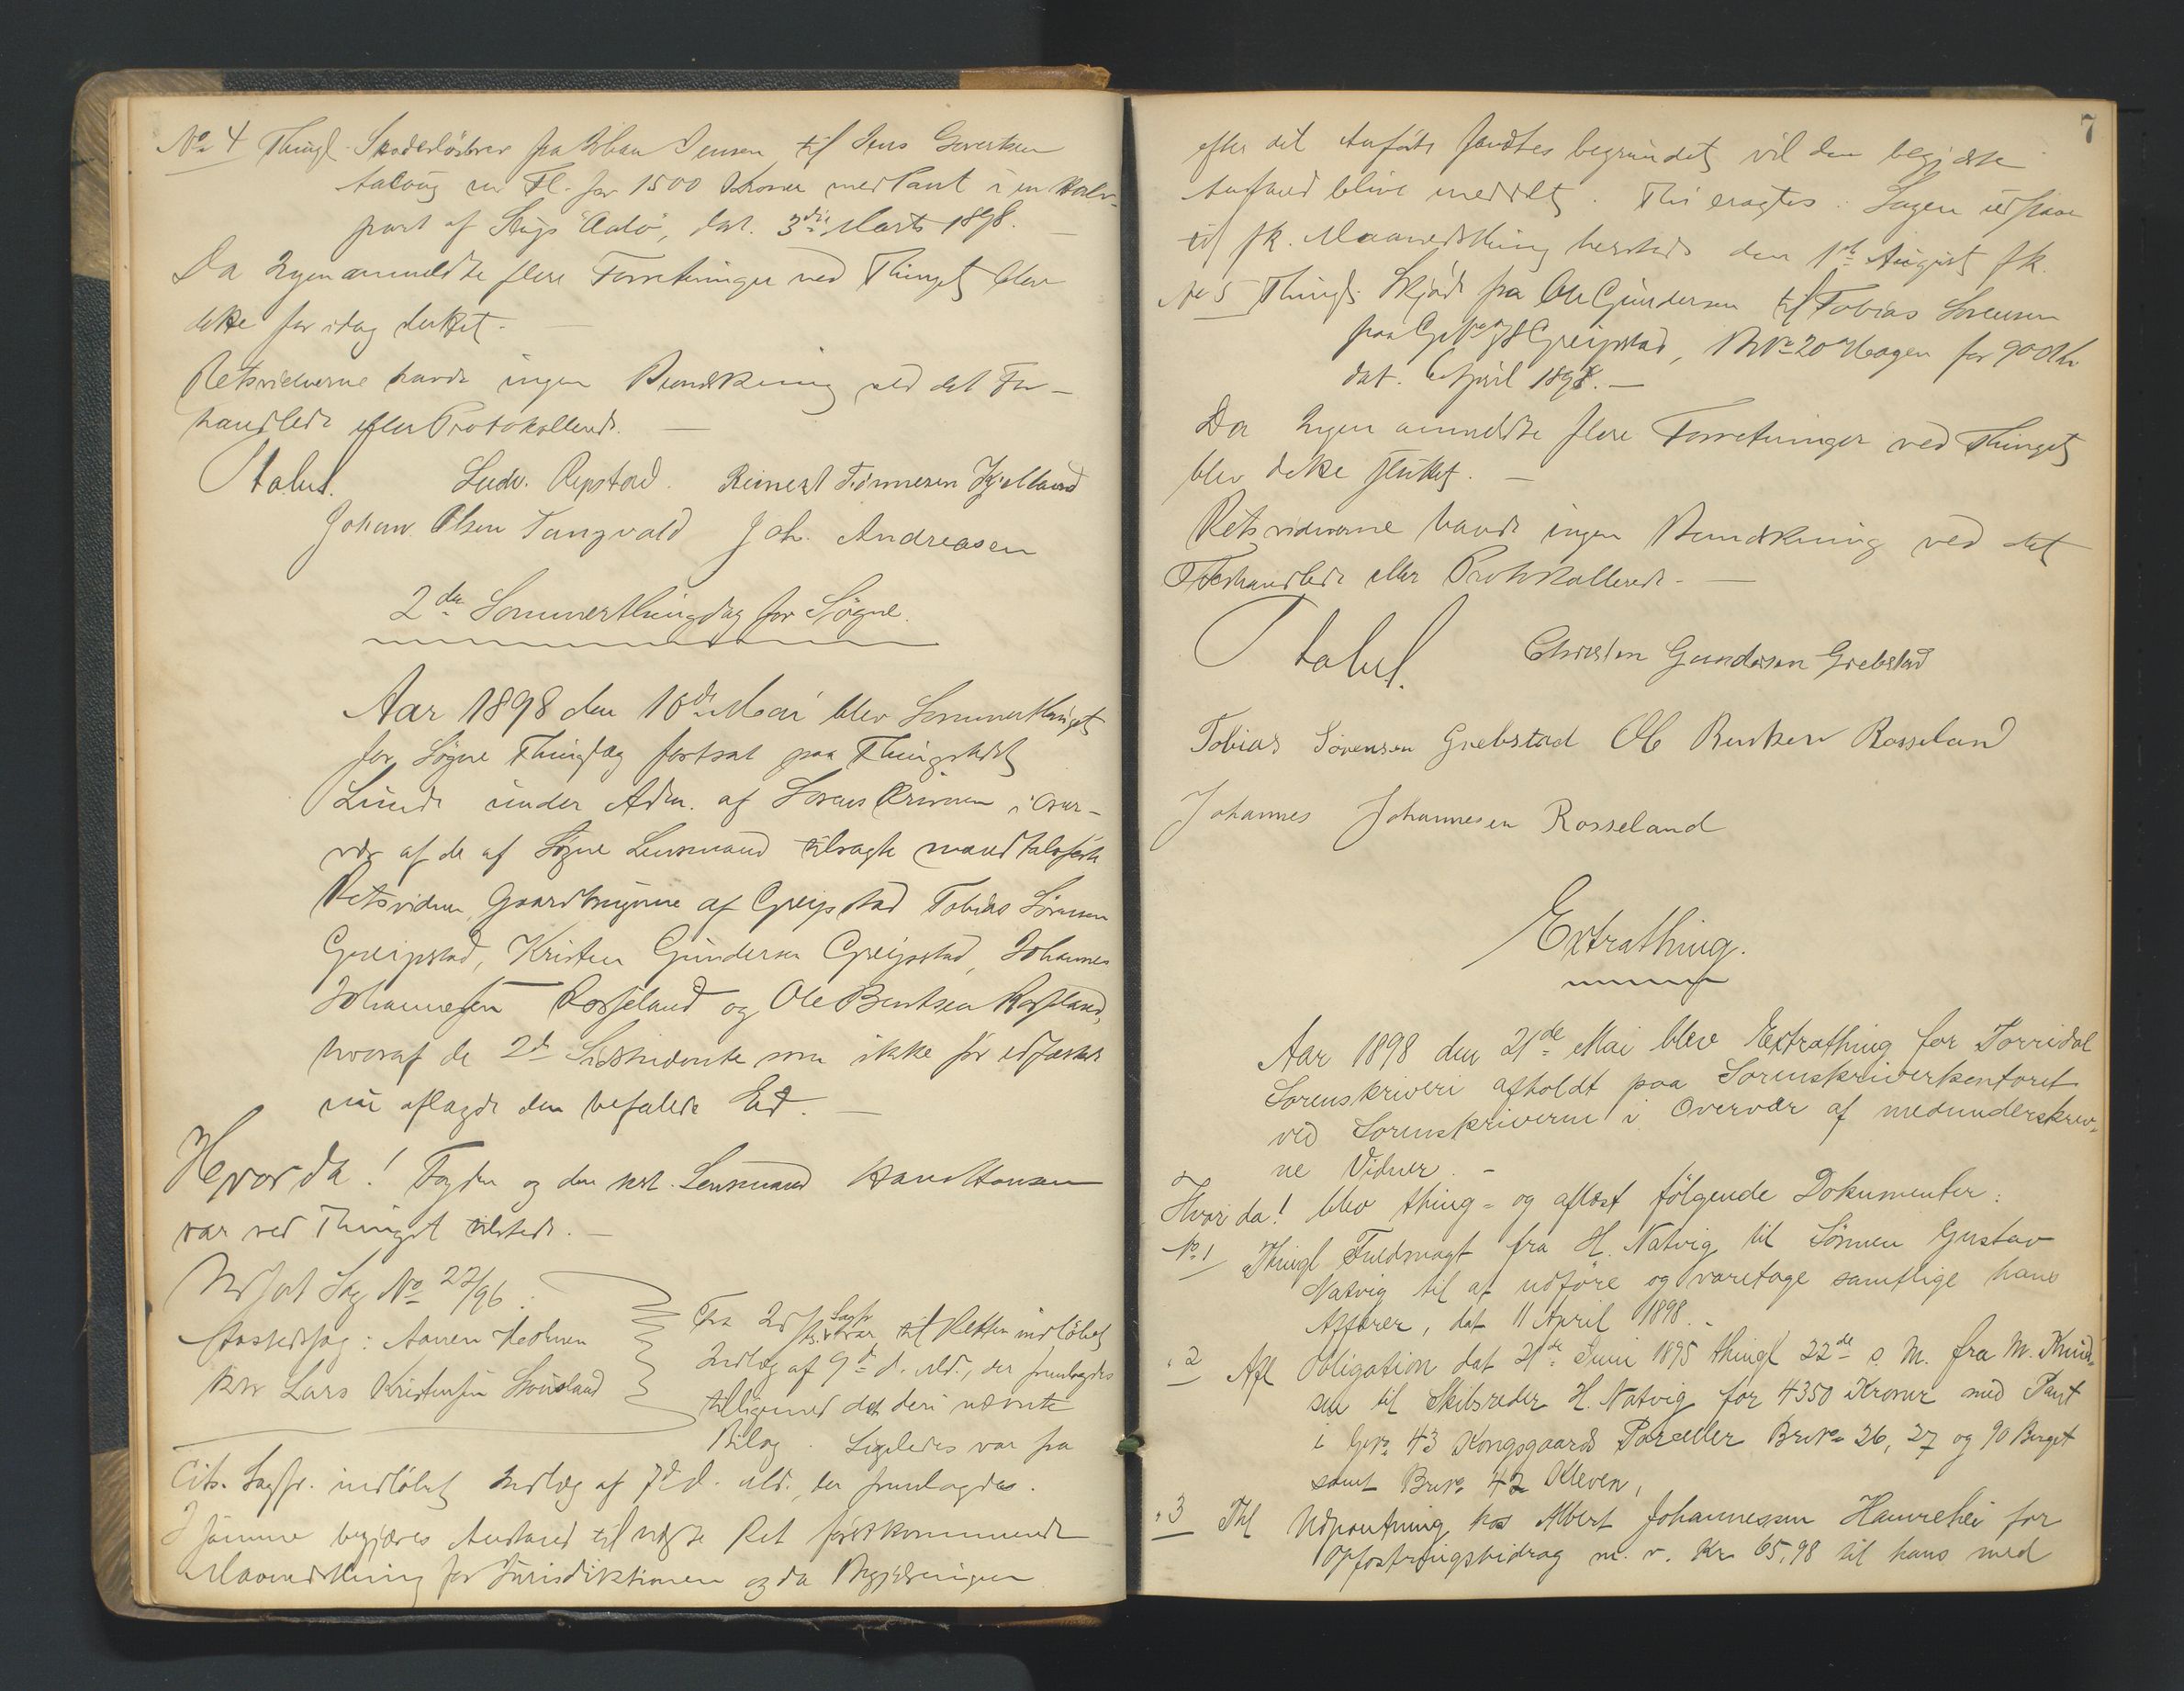 No 4 Thingl. Skadesløsbrev fra Johan Jensen til Jens Severtsen
Aaløug m. Fl. for 1500 Kroner med Pant i en Halv-
part af Slup "Adlo", dat. 3die Marts 1898.
Da Ingen anmeldte flere Forretninger ved Thinget blev
dette for idag sluttet.
Retsvidnerne havde ingen Bemærkning ved det For-
handlede eller Protokollerede.
Stabel. Ludv. Repstad. Reinert Tønnesen Kjelland
Johan Olsen Tangvald Joh. Andreasen
2den Sommerthingdag for Søgne.
Aar 1898 den 10de Mai blev Sommerthinget
for Søgne Thinglag fortsat paa Thingstedet
Lunde under Adm. af Sorenskriveren i Over-
vær af de af Søgne Lensmand tilsagte mandtalsførte
Retsvidner, Gaardbrugerne af Greipstad Tobias Sørensen
Greipstad, Kristen Gundersen Greipstad, Johannes
Johannesen Rosseland og Ole Bentsen Rosseland,
hvoraf de 2de Sidstnævnte som ikke før edfæstede
nu aflagde den befalede Ed.
Hvor da! Fogden og den kst. Lensmand
var ved Thinget tilstede.
Udsat Sag No 22/96:
Aastedssag: Aanen
ktr Lars Kristensen
Fra Sagfr. var til Retten indløbet
Indlæg af 9de d. Md., der fremlagdes
tilligemed det deri nævnte
Bilag. Ligeledes var fra
Cits. Sagfr. indløbet Indlæg af 7de d. Md., der fremlagdes.
I samme begjæres Anstand til næste Ret førstkommende
Maanedsthing for Jurisdiktionen og da Begjæringen
7
efter det Anførte fandtes begrundet vil den begjærte
Anstand blive meddelt. Thi eragtes: Sagen udsaaes
til fk. Maanedsthing hersteds den 1ste August fk.
No 5 Thingl. Skjøde fra Ole Gundersen til Tobias Sørensen
paa G No 78 Greipstad, BNo 20 Hagen for 900 Kr
dat. 6 April 1898.
Da Ingen anmeldte flere Forretninger ved Thinget
blev dette sluttet.
Retsvidnerne havde ingen Bemærkning ved det
Forhandlede eller Protokollerede.
Stabel. Christen Gundersen Grebstad
Tobias Sørensen Grebstad Ole Bentsen Rosseland
Johannes Johannesen Rosseland
Extrathing.
Aar 1898 den 21de Mai blev Extrathing for Torridal
Sorenskriveri afholdt paa Sorenskriverkontoret
ved Sorenskriveren i Overvær af medunderskrev-
ne Vidner.
Hvor da! blev thing- og aflæst følgende Dokumenter:
No 1 Thingl Fuldmagt fra H. Natvig til Sønnen Gustav
Natvig til at udføre og varetage samtlige hans
Affærer, dat 11 April 1898.
" 2 Afl Obligation dat 21de Juni 1895 thingl 22de s. M. fra M. Knud-
sen til Skibsreder H. Natvig for 4350 Kroner med Pant
i Gno 43 Kongsgaards Parceller Bno 26, 27 og 90 Berget
samt Bno 42 Kleven,
" 3 Thl Udpantning hos Albert Johannessen Hamrehei for
Opfostringsbidrag m. v. Kr 65,98 til hans med